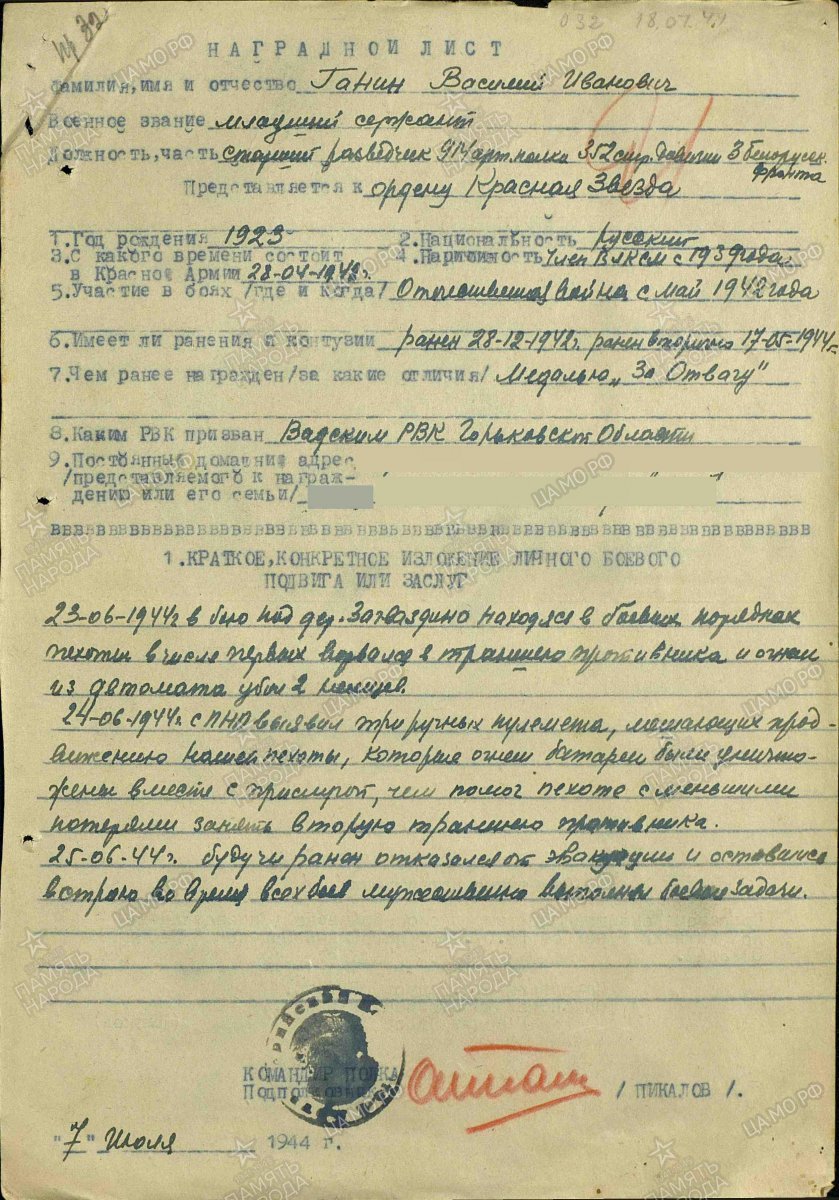 032 18.07.44
№ 32
НАГРАДНОЙ ЛИСТ
Фамилия,имя и отчество Ганин Василий Иванович
Военное звание младший сержант
Должность,часть старший разведчик 914 арт.полка 352 стр. дивизии 3 Белорусск.
фронта
Представляется к ордену Красная Звезда
1.Год рождения 1923 2.Национальность русский
3.С какого времени состоит 4.Партийность Член ВЛКСМ с 1939 года
в Красной Армии 28-04-1942г.
5.Участие в боях /где и когда/ Отечественная война с май 1942 года
6.Имеет ли ранения и контузии ранен 28-12-1942г. ранен вторично 17-05-1944г.
7.Чем ранее награжден/за какие отличия/ Медалью „За Отвагу"
8.Каким РВК призван Вадским РВК Горьковской Области
9.Постоянный домашний адрес
/представляемого к награж-
дению или его семьи/
вввввввввввввввввввввввввввввввввввввввввввввввв
1.КРАТКОЕ,КОНКРЕТНОЕ ИЗЛОЖЕНИЕ ЛИЧНОГО БОЕВОГО
ПОДВИГА ИЛИ ЗАСЛУГ
23-06-1944г в бою под дер. Загваздино находясь в боевых порядках
пехоты в числе первых ворвался в траншею противника и огнем
из автомата убил 2 немцев.
24-06-1944г. с ПНП выявил три ручных пулемета, мешающих прод-
вижению нашей пехоты, которые огнем батареи были уничто-
жены вместе с прислугой, чем помог пехоте с меньшими
потерями занять вторую траншею противника.
25-06-44г. будучи ранен отказался от эвакуации и оставался
в строю во время всех боев мужественно выполнял боевые задачи.
КОМАНДИР ПОЛКА
Подполковник / ПИКАЛОВ /.
"7" Июля 1944 г.